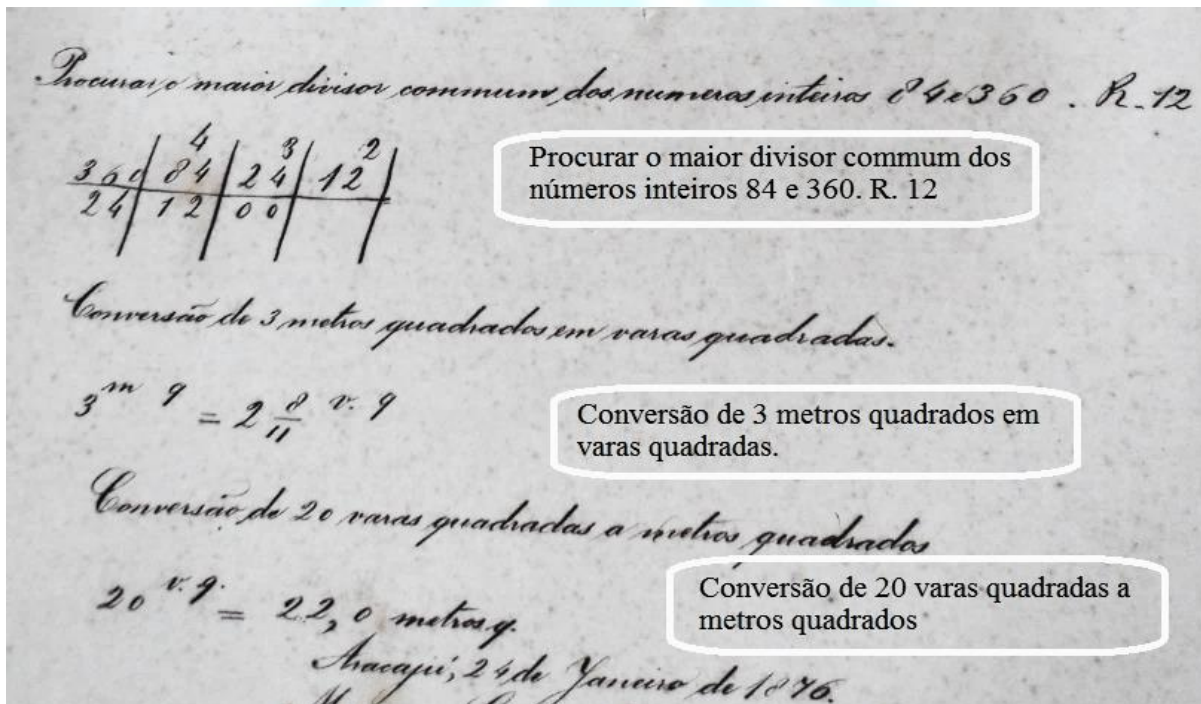 Procurar o maior divisor commum dos numeros inteiros 84 e 360. R. 12
4 3 2
360 84 24 12
24 12 00
Procurar o maior divisor commum dos
números inteiros 84 e 360. R. 12
Conversão de 3 metros quadrados em varas quadradas.
3 m q = 2 8/11 v. q
Conversão de 3 metros quadrados em
varas quadradas.
Conversão de 20 varas quadradas a metros quadrados
20 v. q. = 22,0 metros q.
Conversão de 20 varas quadradas a
metros quadrados
Aracajú, 24 de Janeiro de 1876.